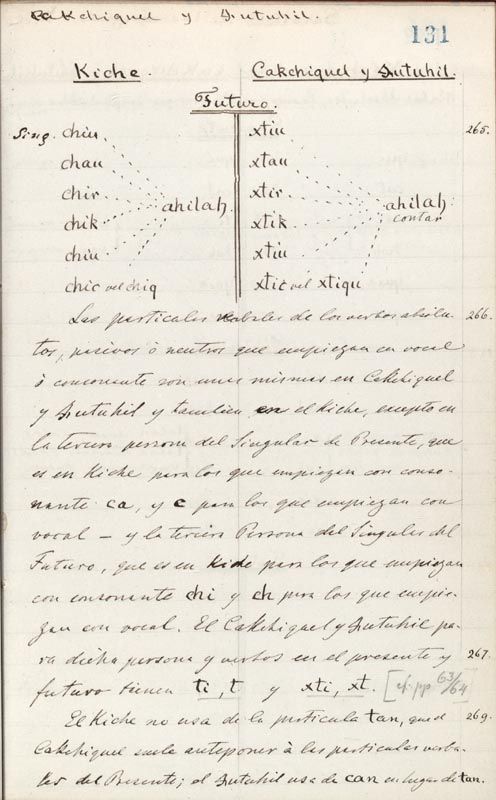 Cakchiquel y Zutuhil.
131
Kiche. Cakchiquel y Zutuhil.
Futuro.
Sing. chin xtin 265.
chau xtau
chir xtir
ahilah. ahilah
chik xtik contar
chiu xtiu
chic vel chiq xtic vel xtiqu
Las particulas verbales de los verbos absolu- 266.
tos, pasivos ó neutros que empiezan en vocal
ó consonante son unas mismas en Cakchiquel
y Zutuhil y tambien en el Kiche, excepto en
la tercera persona del Singular de Presente, que
es en Kiche para los que empiezan con conso-
nante ca, y c para los que empiezan con
vocal — y la tercera Persona del Singular del
Futuro, que es en Kiche para los que empiezan
con consonante chi y ch para los que empie-
zan con vocal. El Cakchiquel y Zutuhil pa-
ra dicha persona y verbos en el presente y 267.
futuro tienen ti, t y xti, xt. [cf. pp 63/64]
El Kiche no usa de la particula tan, que el 269.
Cakchiquel suele anteponer á las particulas verba-
les del Presente; el Zutuhil usa de can en lugar de tan.